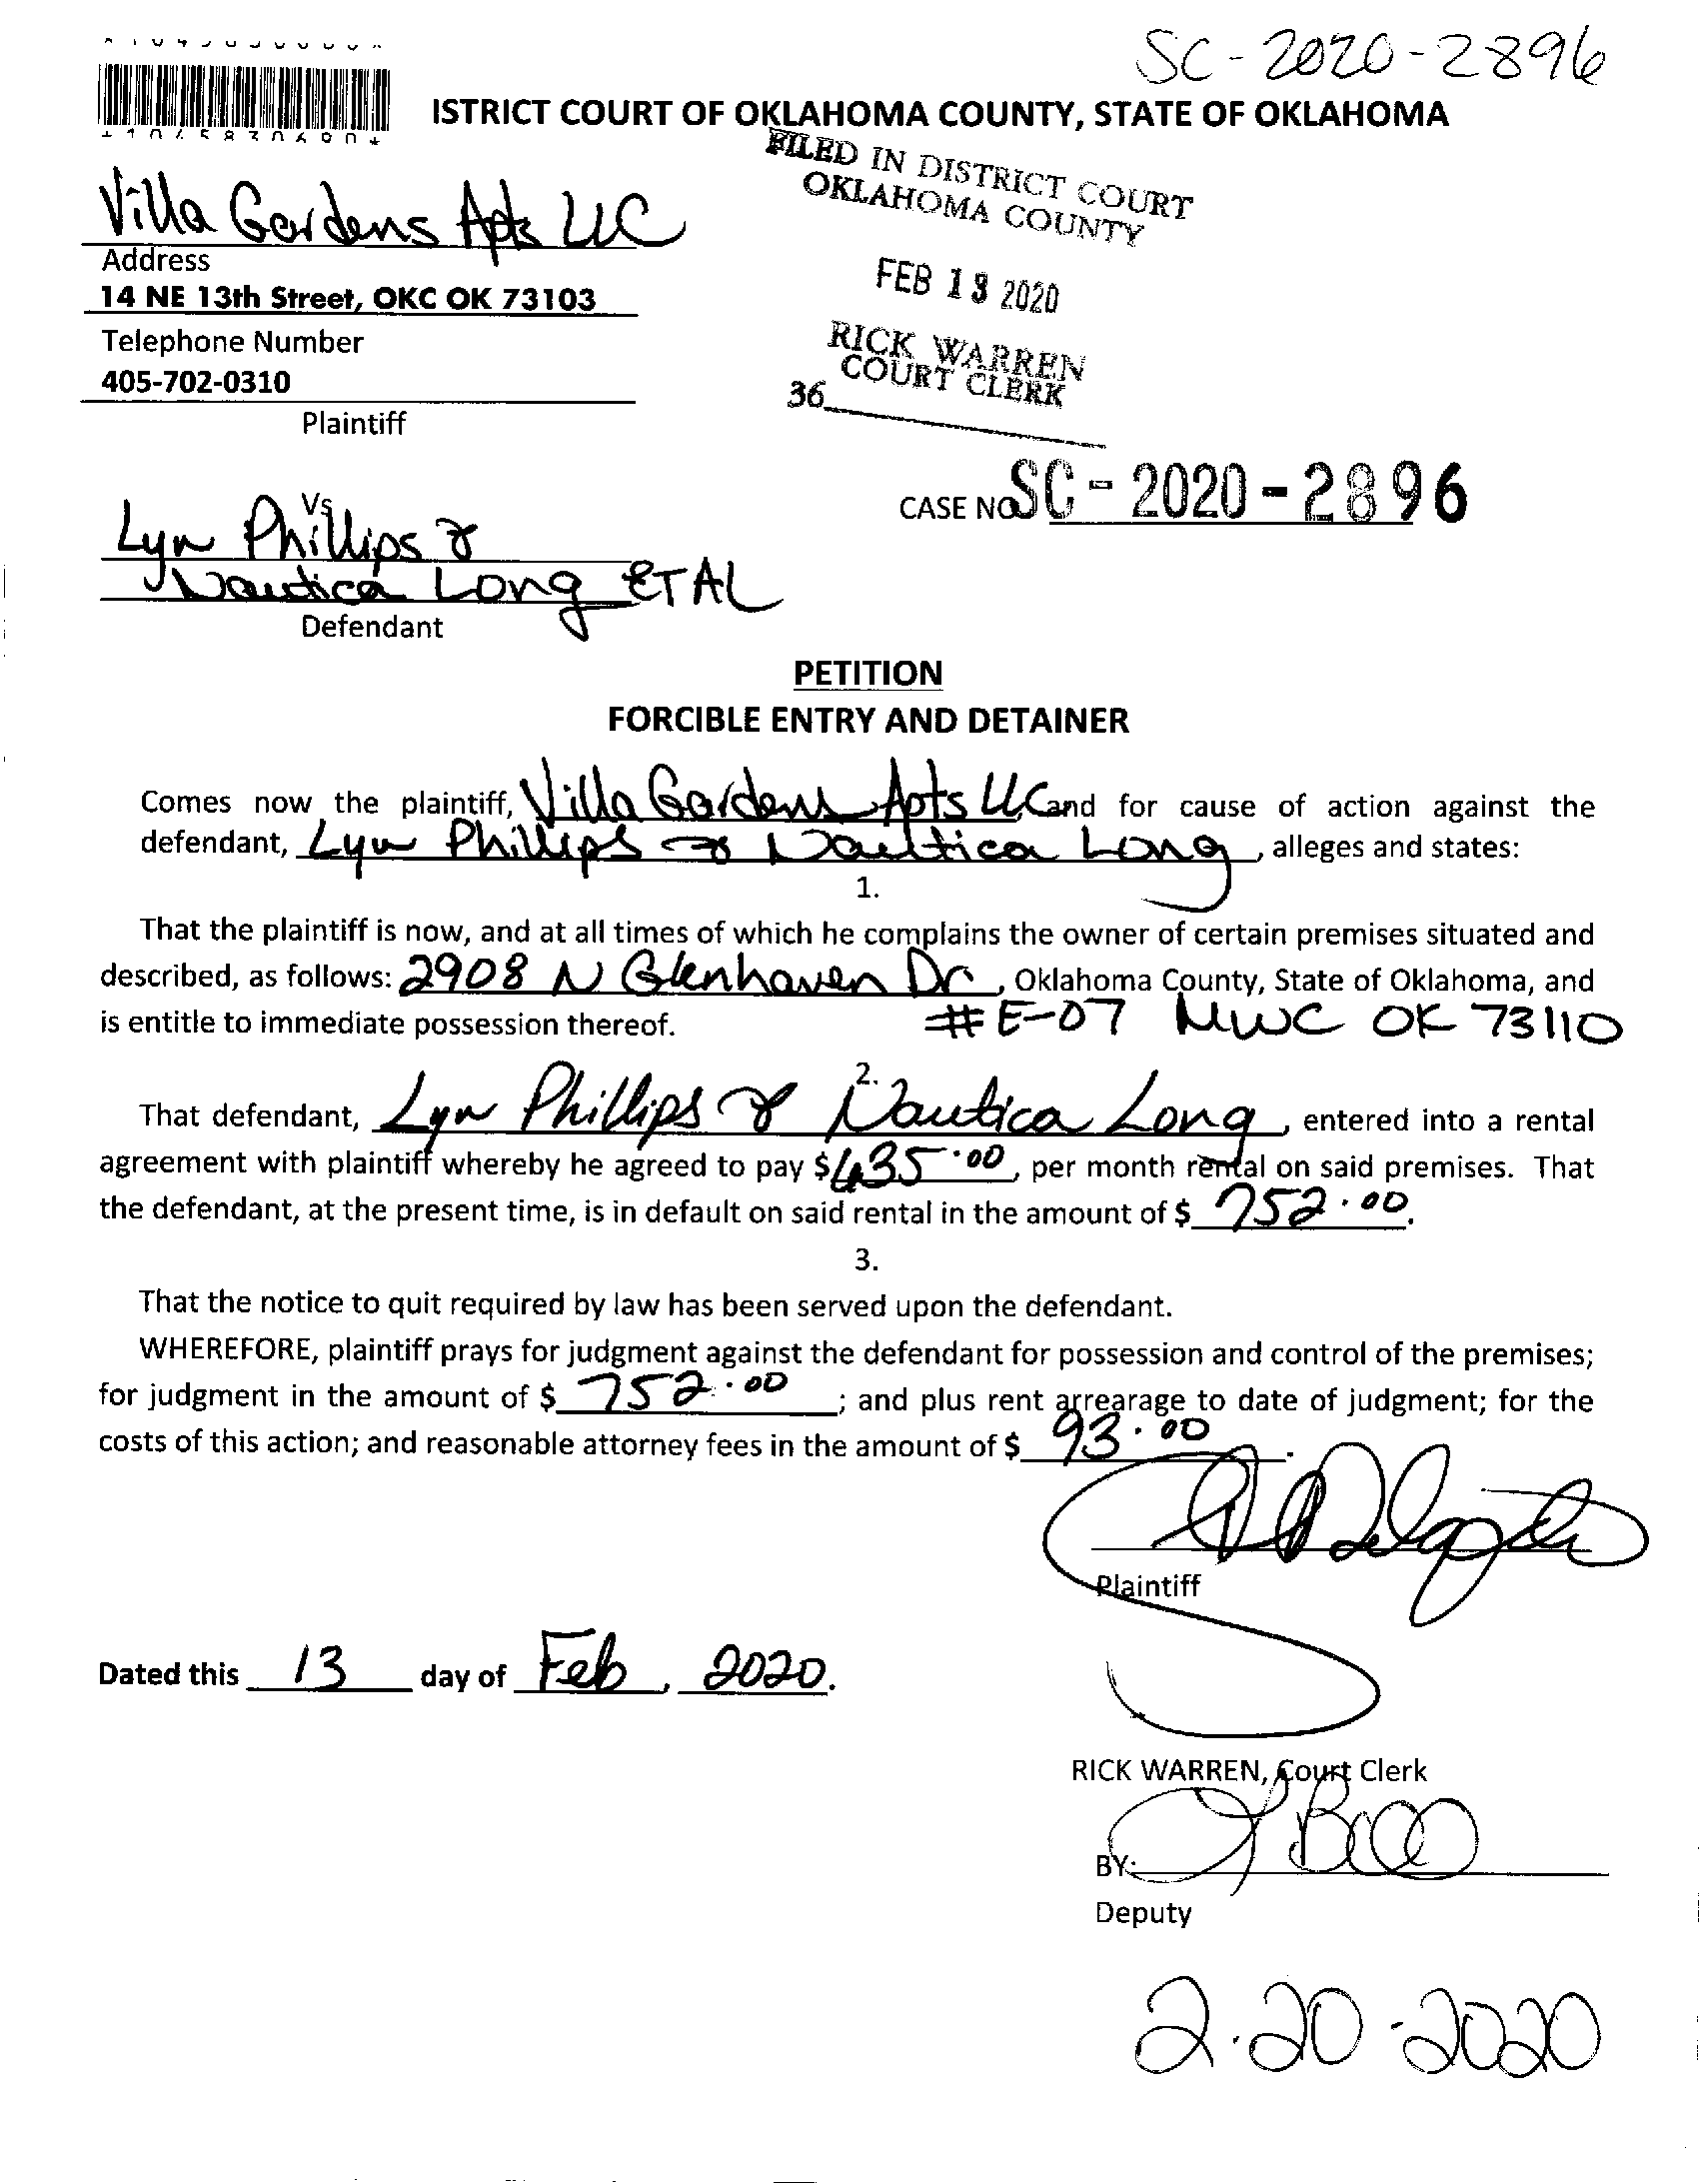 SC-2020-2896
ISTRICT COURT OF OKLAHOMA COUNTY, STATE OF OKLAHOMA
FILED IN DISTRICT COURT
OKLAHOMA COUNTY
FEB 13 2020
RICK WARREN
COURT CLERK
36
Villa Gardens Apts LLC
Address
14 NE 13th Street, OKC OK 73103
Telephone Number
405-702-0310
Plaintiff
Vs
CASE NO SC-2020-2896
Lyn Phillips &
Nautica Long ETAL
Defendant
PETITION
FORCIBLE ENTRY AND DETAINER
Comes now the plaintiff, Villa Gardens Apts LLC and for cause of action against the
defendant, Lyn Phillips & Nautica Long, alleges and states:
1.
That the plaintiff is now, and at all times of which he complains the owner of certain premises situated and
described, as follows: 2908 N Glenhaven Dr, Oklahoma County, State of Oklahoma, and
is entitle to immediate possession thereof. #E-07 MWC OK 73110
2.
That defendant, Lyn Phillips & Nautica Long, entered into a rental
agreement with plaintiff whereby he agreed to pay $635.00, per month rental on said premises. That
the defendant, at the present time, is in default on said rental in the amount of $ 752.00.
3.
That the notice to quit required by law has been served upon the defendant.
WHEREFORE, plaintiff prays for judgment against the defendant for possession and control of the premises;
for judgment in the amount of $ 752.00; and plus rent arrearage to date of judgment; for the
costs of this action; and reasonable attorney fees in the amount of $ 93.00.
Plaintiff
Dated this 13 day of Feb, 2020.
RICK WARREN, Court Clerk
BY:
Deputy
2.20-2020